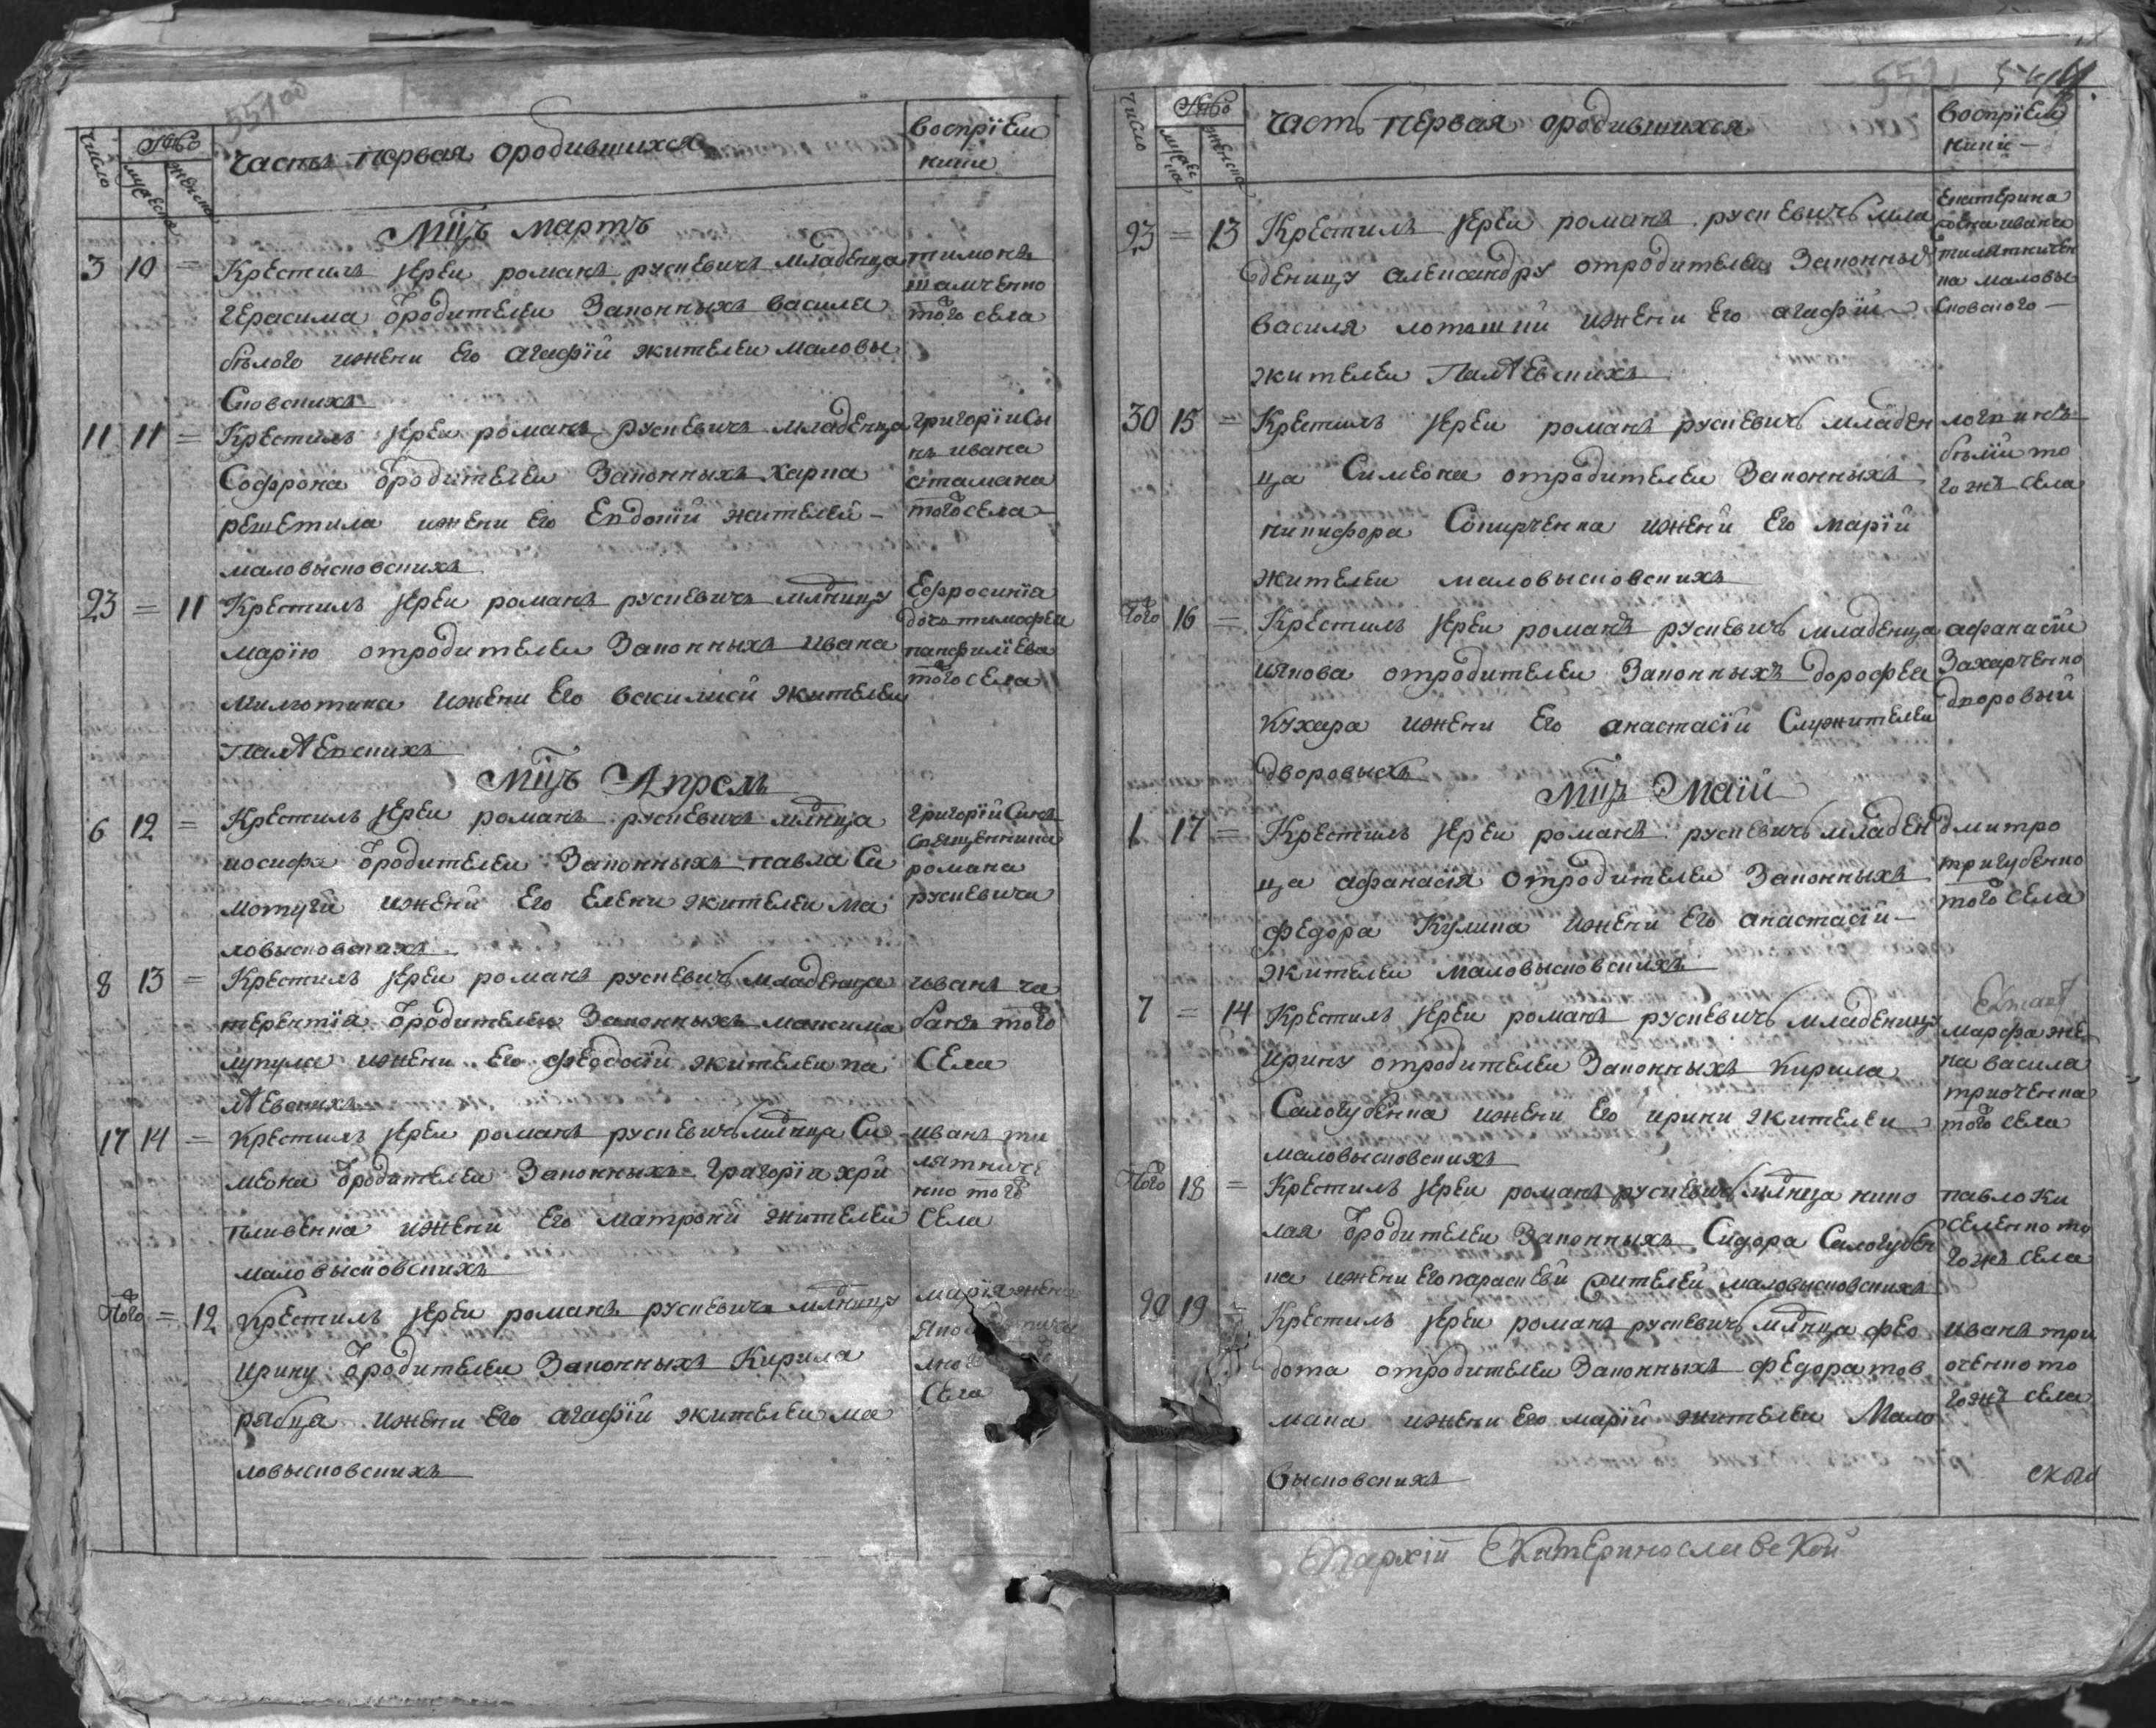 число
мужеска
женска
часть первая ородившихся
воспрїем
ники
Мц҃ъ мартъ
3 10 =
Крестилъ іереи романъ русиевичъ младенца
герасима ѿродителеи Законныхъ василя
бѣлого ижени Его агафїи жителеи маловы
сковскихъ
тимонъ
того села
11 11 =
Крестилъ іереи романъ русиевичъ младенца
Софрона ѿродителеи Законныхъ карпа
решетила ижени Его Евдокїи жителеи
маловысковскихъ
григорїи сы
нъ ивана
атамана
того села
23 = 11
Крестилъ іереи романъ русиевичъ млнцу
марїю отродителеи Законныхъ ивана
ижени Его василисы жителеи
палѣевскихъ
Ефросинїа
дочь тимофеи
панфилїева
того села
Мц҃ъ Апрель
6 12 =
Крестилъ іереи романъ русиевичъ млнца
иосифа ѿродителеи Законныхъ павла Си
мотуги ижени Его Елени жителеи ма
ловысковскихъ
григорїй синъ
священника
романа
русиевича
8 13 =
Крестилъ іереи романъ русиевичъ младенца
терентїя ѿродителеи Законныхъ максима
лупула ижени Его феодосїи жителеи па
лѣевскихъ
иванъ ча
банъ того
села
17 14 =
Крестилъ іереи романъ русиевичъ млнца Си
меона ѿродителеи Законныхъ григорїя хри
пливенка ижени Его матрони жителеи
маловысковскихъ
иванъ ти
лятниче
нко того
села
Того = 12
Крестилъ іереи романъ русиевичъ млнцу
ирину ѿродителеи Законныхъ Кирила
рябца ижени Его агафїи жителеи ма
ловысковскихъ
марїя жена
села
число
мужеска
женска
часть первая ородившихся
воспрїем
ники
23 = 13
Крестилъ іереи романъ русиевичъ мла
деницу александру отродителеи Законных
василя лоташни ижени Его агафїи
жителеи Палѣевскихъ
Екатерина
жена ивана
тилятничен
ка маловы
сковского
30 15 =
Крестилъ іереи романъ русиевичъ младен
ца Симеона отродителеи Законныхъ
никифора Сокирченка ижени Его марїй
жителеи маловысковскихъ
логвинъ
бѣлїй то
гожъ села
Того 16 =
Крестилъ іереи романъ русиевичъ младенца
иякова отродителеи Законныхъ дорофея
кухара ижени Его анастасїи Служителеи
дворовыхъ
афанасїи
Захарченко
дворовый
Мц҃ъ Маїй
1 17 =
Крестилъ іереи романъ русиевичъ младен
ца афанасїя отродителеи Законныхъ
федора Кулика ижени Его анастасїи
жителеи маловысковскихъ
дмитро
тригубенко
того села
7 = 14
Крестилъ іереи романъ русиевичъ младеницу
ирину отродителеи Законныхъ Кирила
Салогубенка ижени Его ирини жителеи
маловысковскихъ
марфа же
на василя
триоченка
того села
Того 18 =
Крестилъ іереи романъ русиевичъ млнца нико
лая ѿродителеи Законныхъ Сидора Салогубен
ка ижени Его параскевїи жителей маловысковскихъ
павло ки
селенко то
гожъ села
20 19 =
Крестилъ іереи романъ русиевичъ млнца фео
дота отродителеи Законныхъ федора тов
мача ижени Его марїи жителеи Мало
высковскихъ
иванъ три
оченко то
гожъ села
Епархїи Екатеринославской